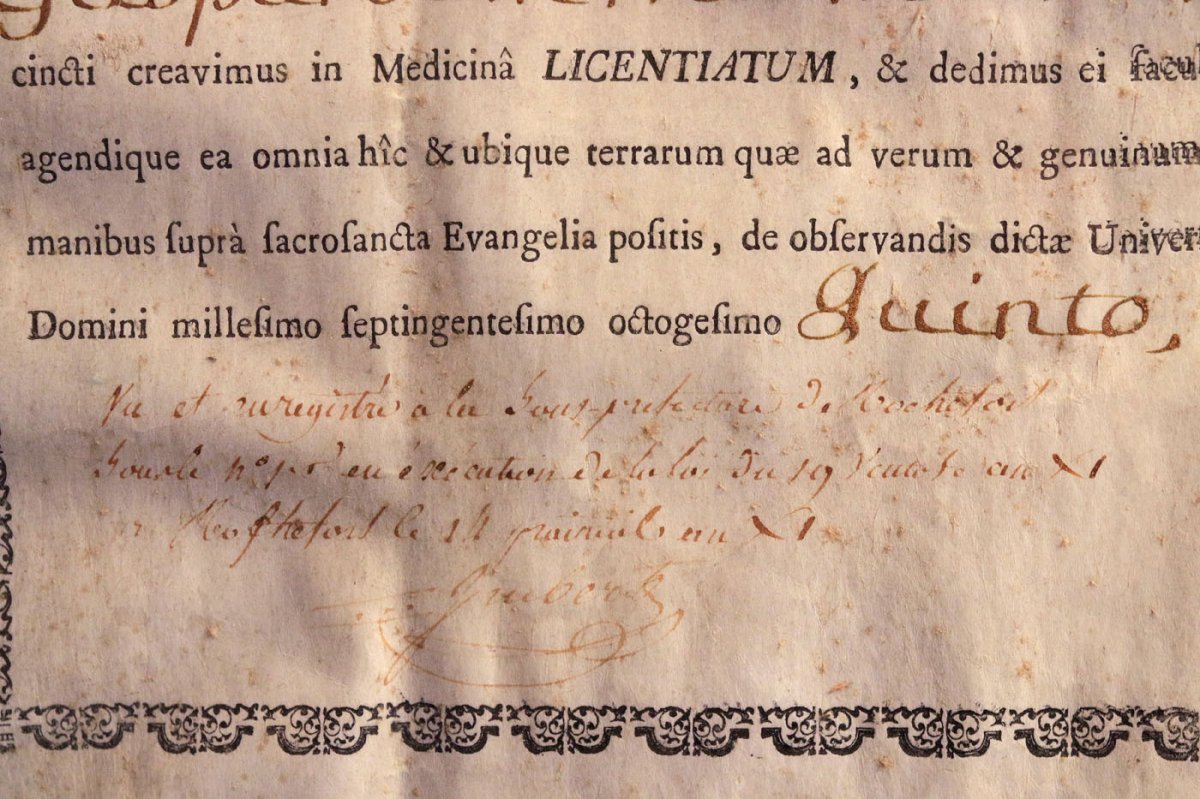 cincti creavimus in Medicinâ LICENTIATUM, & dedimus ei facul
agendique ea omnia hîc & ubique terrarum quæ ad verum & genuinum
manibus ſuprà ſacroſancta Evangelia poſitis, de obſervandis dictæ Univerſ
Domini milleſimo ſeptingenteſimo octogeſimo Quinto,
Vu et enregistré à la Sous-préfecture de Rochefort
Sous le n° en éxécution de la loi du 19 Ventose an XI
Rochefort le 14 prairial an XI